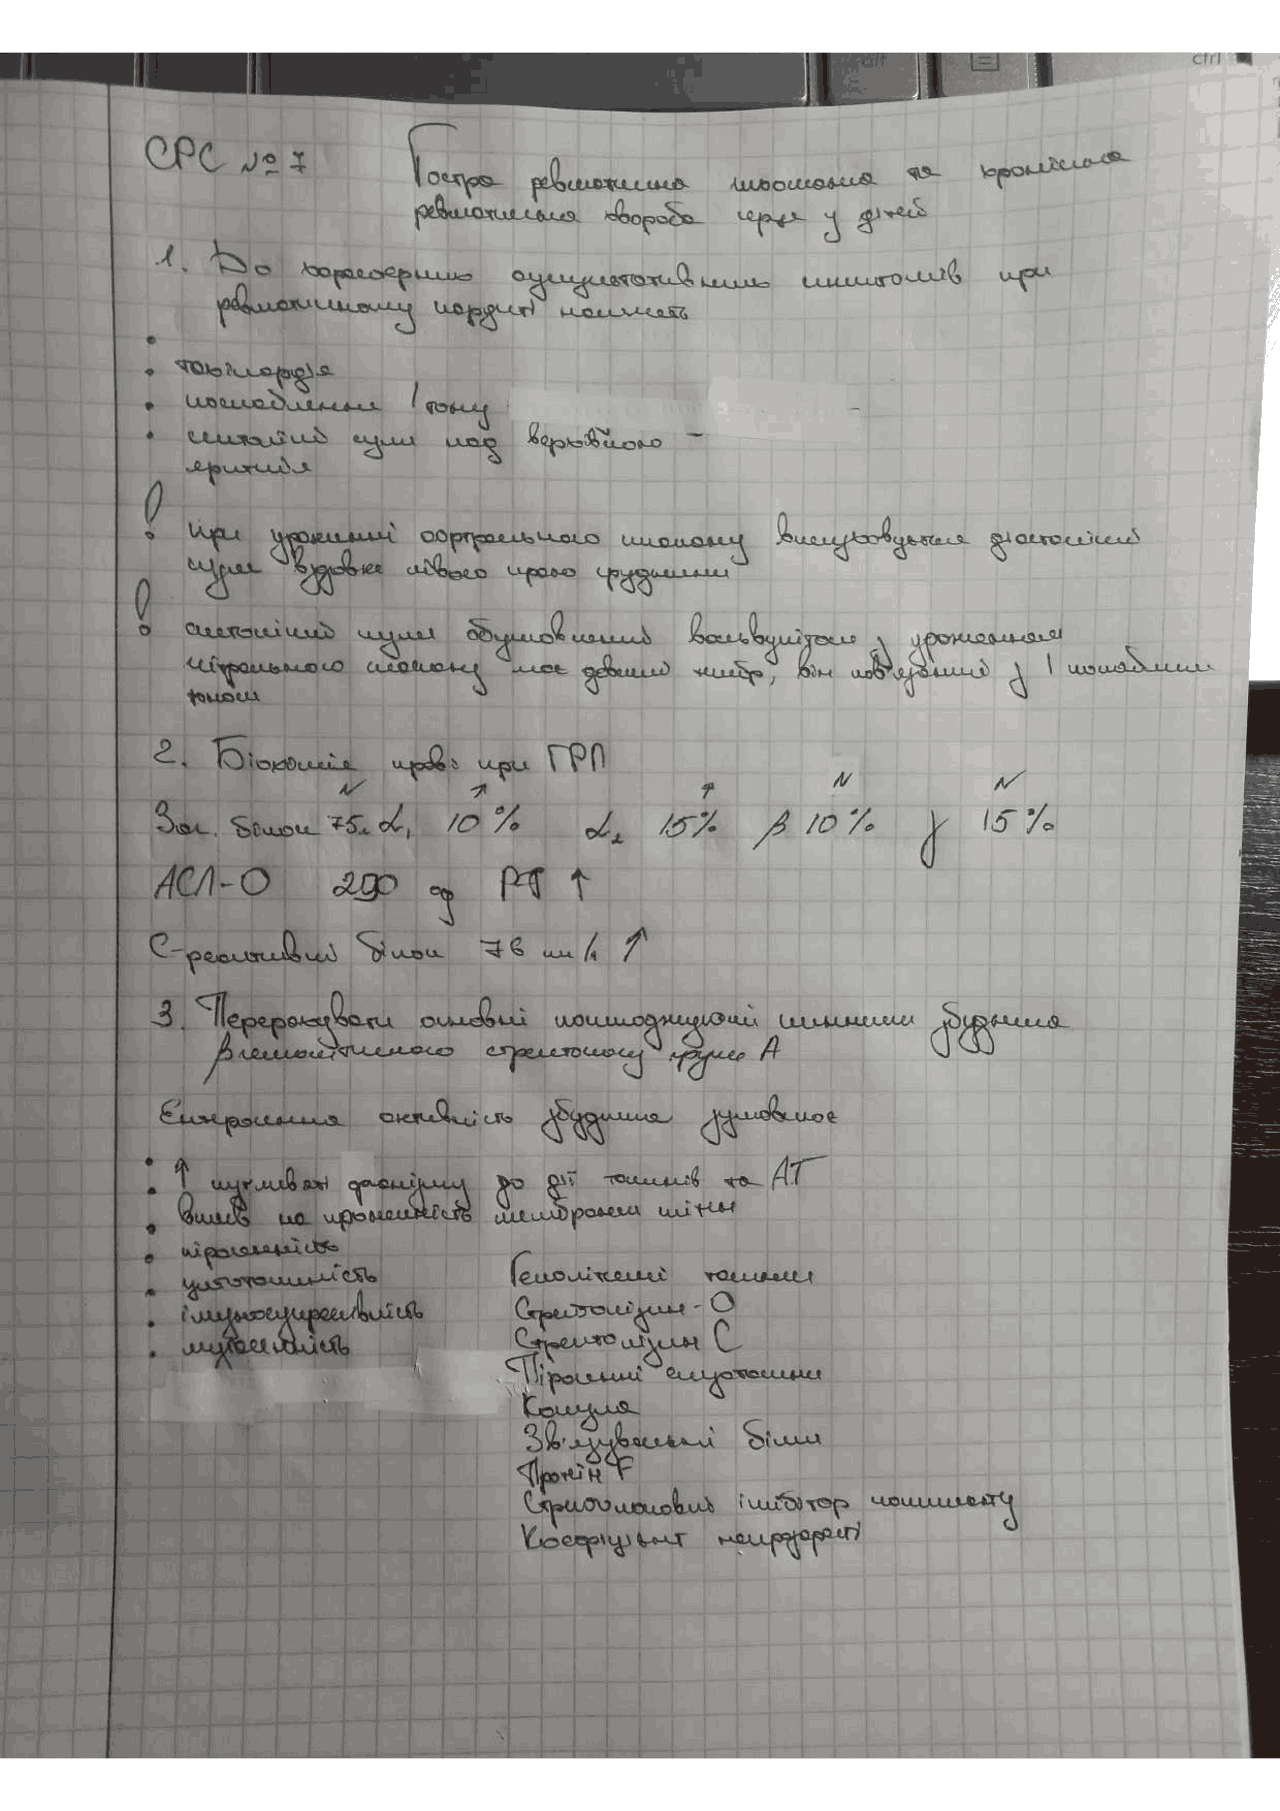 СРС № 7
Гостра ревматична лихоманка та хронічна
ревматична хвороба серця у дітей
1. До характерних аускультативних симптомів при
ревматичному кардиті належать
тахікардія
послаблення I тону
систолічний шум над верхівкою -
аритмія
! при ураженні аортального клапану вислуховується діастолічний
шум вздовж лівого краю грудини
! систолічний шум обумовлений вальвулітом з ураженням
мітрального клапану має дуючий тембр, він пов'язаний з I
тоном
2. Біохімія крові при ГРЛ
N ↑ ↑ N N
Заг. білок 75 α₁ 10% α₂ 15% β 10% γ 15%
АСЛ-О 290 од РФ ↑
С-реактивний білок 76 ↑
3. Перерахувати основні пошкоджуючі чинники збудника
β гемолітичного стрептококу групи А
активність збудника зумовлює
↑ чутливості організму до дії токсинів та АТ
вплив на проникність мембрани клітин
пірогенність
цитотоксичність
імуносупресивність
мутагенність
Гемолітичні токсини
Стрептолізин-О
Стрептолізин С
Пірогенні екзотоксини
Капсула
Зв'язувальні білки
Протеїн F
Стрептококовий інгібітор комплементу
Коефіцієнт непрозорості